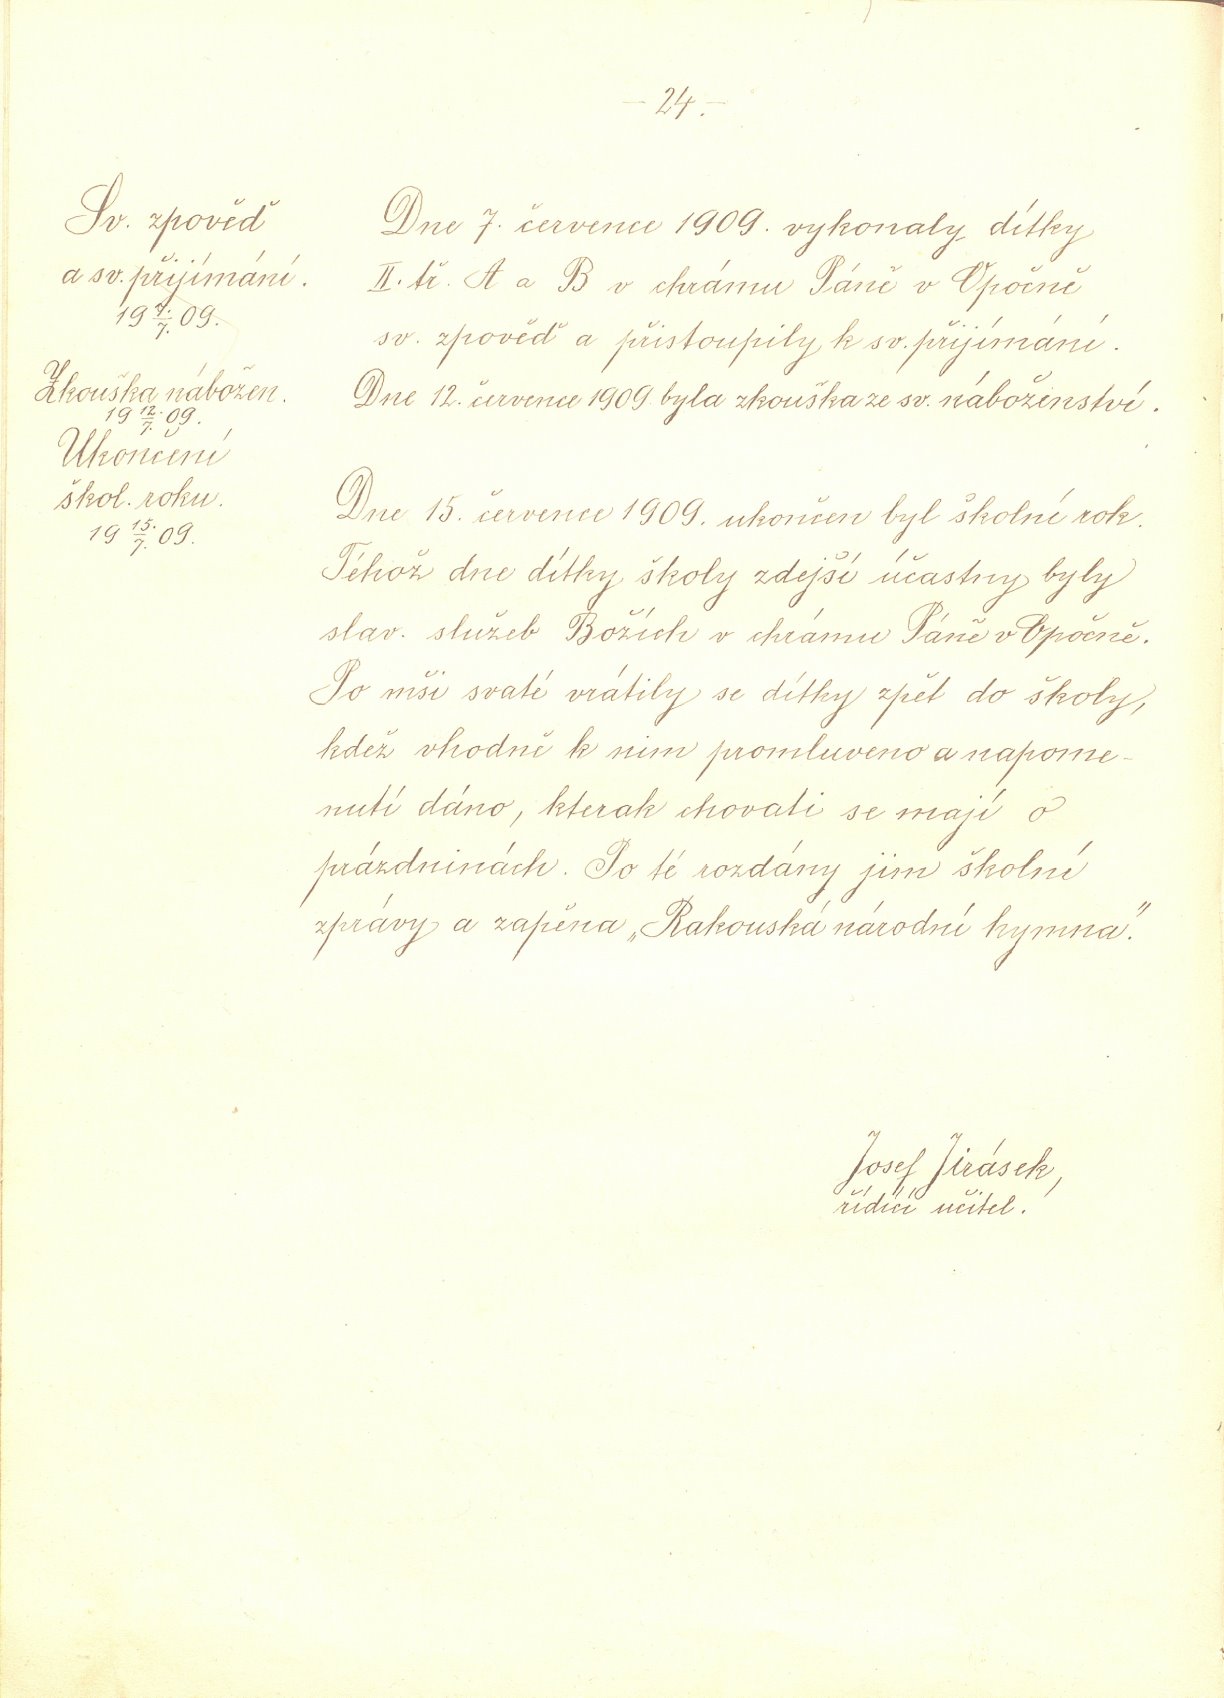 – 24. –
Sv. zpověď
a sv. přijímání.
19 7./7. 09.
Dne 7. července 1909. vykonaly dítky
II. tř. A a B v chrámu Páně v Opočně
sv. zpověď a přistoupily k sv. přijímání.
Zkouška nábožen.
19 12./7. 09.
Dne 12. července 1909 byla zkouška ze sv. náboženství.
Ukončení
škol. roku.
19 15./7. 09.
Dne 15. července 1909. ukončen byl školní rok.
Téhož dne dítky školy zdejší účastny byly
slav. služeb Božích v chrámu Páně v Opočně.
Po mši svaté vrátily se dítky zpět do školy,
kdež vhodně k nim promluveno a napome-
nutí dáno, kterak chovati se mají o
prázdninách. Po té rozdány jim školní
zprávy a zapěna „Rakouská národní hymna“.
Josef Jirásek,
řídící učitel.